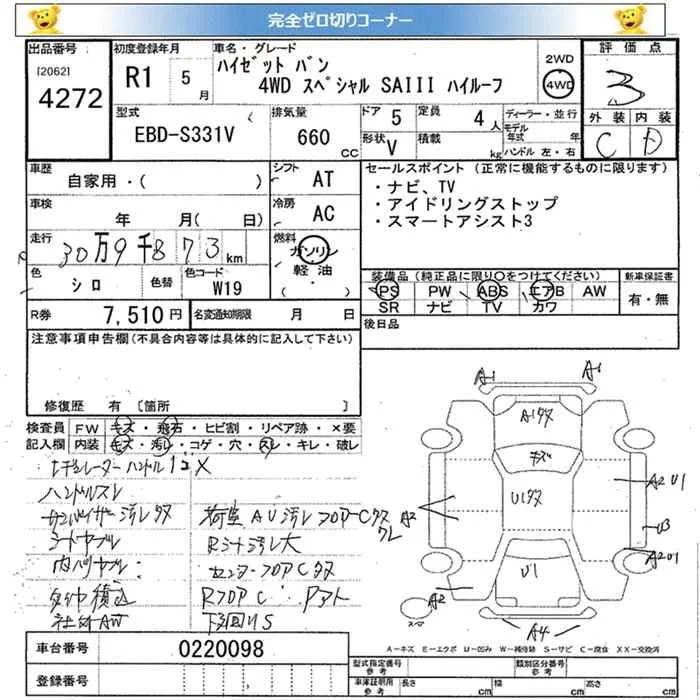 完全ゼロ切りコーナー
出品番号 初度登録年月 車名・グレード 評価点
[2062] R1 5月 ハイゼット バン 2WD 3
4272 4WD スペシャル SAIII ハイルーフ 4WD
型式 排気量 ドア 5 定員 4人 ディーラー・並行 外装 内装
EBD-S331V 660 CC 形状 V 積載 kg モデル年式 年 C D
ハンドル 左・右
車歴 シフト セールスポイント (正常に機能するものに限ります)
自家用・( ) AT ・ナビ、TV
車検 冷房 ・アイドリングストップ
年 月( 日) AC ・スマートアシスト3
走行 燃料
30万9千873km ガソリン
軽油
( )
色 色替 色コード 装備品 (純正品に限り〇をつけてください) 新車保証書
シロ W19 PS PW ABS エアB AW 有・無
SR ナビ TV カワ
R券 7,510円 名変通知期限 月 日 後日品
注意事項申告欄(不具合内容等は具体的に記入して下さい)
修復歴 有 [箇所 ]
検査員 FW キズ・飛石・ヒビ割・リペア跡・×要
記入欄 内装 キズ・汚レ・コゲ・穴・スレ・キレ・破レ
ハンドルスレ
サンバイザー汚レタ 荷室AU汚レ フロアーCタ
シートヤブレ Rシート汚レ大
内ハリヤブレ センターフロアCタ
RフロアC
下回りS
A1 A1
A1タ
キズ
U1タ
A2 U1
A2
U3
A2U1
U1
A2
スマ
A4
A-キズ E-エクボ U-凹み W-補修跡 S-サビ C-腐食 XX-交換済
車台番号 0220098
登録番号
型式指定番号 参考 類別区分番号 参考
車庫証明用 参考 長さ cm 幅 cm 高さ cm